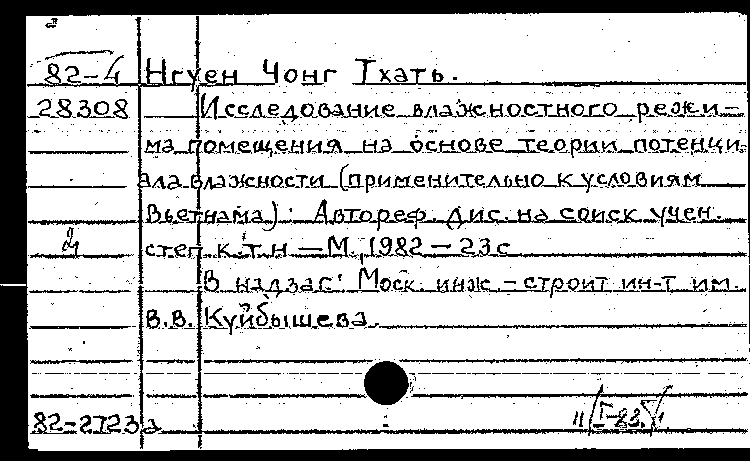 82-4 Нгуен Чонг Тхать.
28308 Исследование влажностного режи-
ма помещения на основе теории потенци-
ала влажности (применительно к условиям
Вьетнама): Автореф. дис. на соиск учен.
степ к.т.н — М., 1982 — 23 с
В надзаг: Моск. инж. - строит ин-т им.
В.В. Куйбышева.
82-2723а